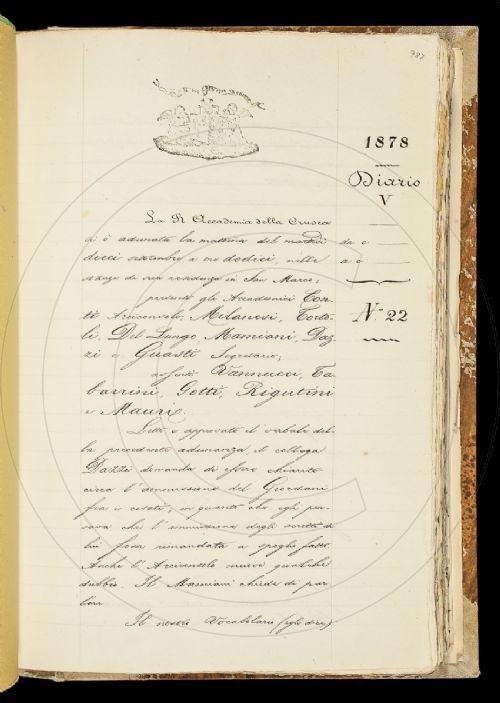 387
1878
Diario
V
N.º 22
La R. Accademia della Crusca
si è adunata la mattina del martedì
dieci settembre, a ore dodici, nelle
stanze di sua residenza in San Marco;
presenti gli Accademici Con-
ti Arciconsolo, Milanesi, Torto-
li, Del Lungo, Mamiani, Daz-
zi e Guasti Segretario;
assenti Vannucci, Ta-
barrini, Gotti, Rigutini
e Mauri.
Letto e approvato il verbale del-
la precedente adunanza, il collega
Dazzi domanda di essere chiarito
circa l'ammissione del Giordani
fra i citati; in quanto che egli pen-
sava che l'ammissione degli scritti di
lui fosse rimandata a spoglio fatto.
Anche l'Arciconsolo muove qualche
dubbio. Il Mamiani chiede di par-
lare.
Il nostro Vocabolario (egli dice)